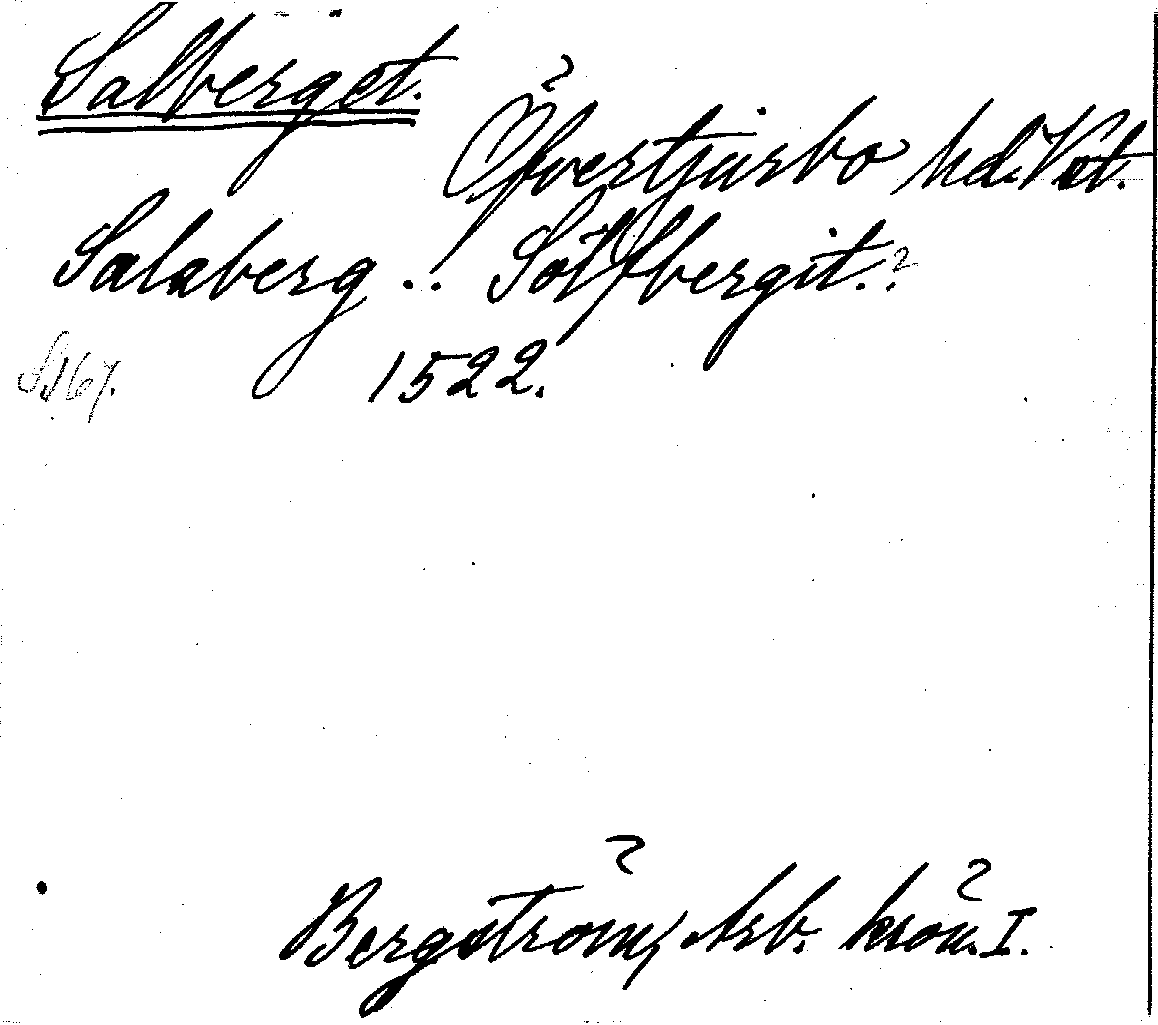 Salberget.
Öfvertjurbo hd. Vst.
Salaberg .. Sölfbergit..
S. 167. 1522.
Bergström, Arb. krön. I.